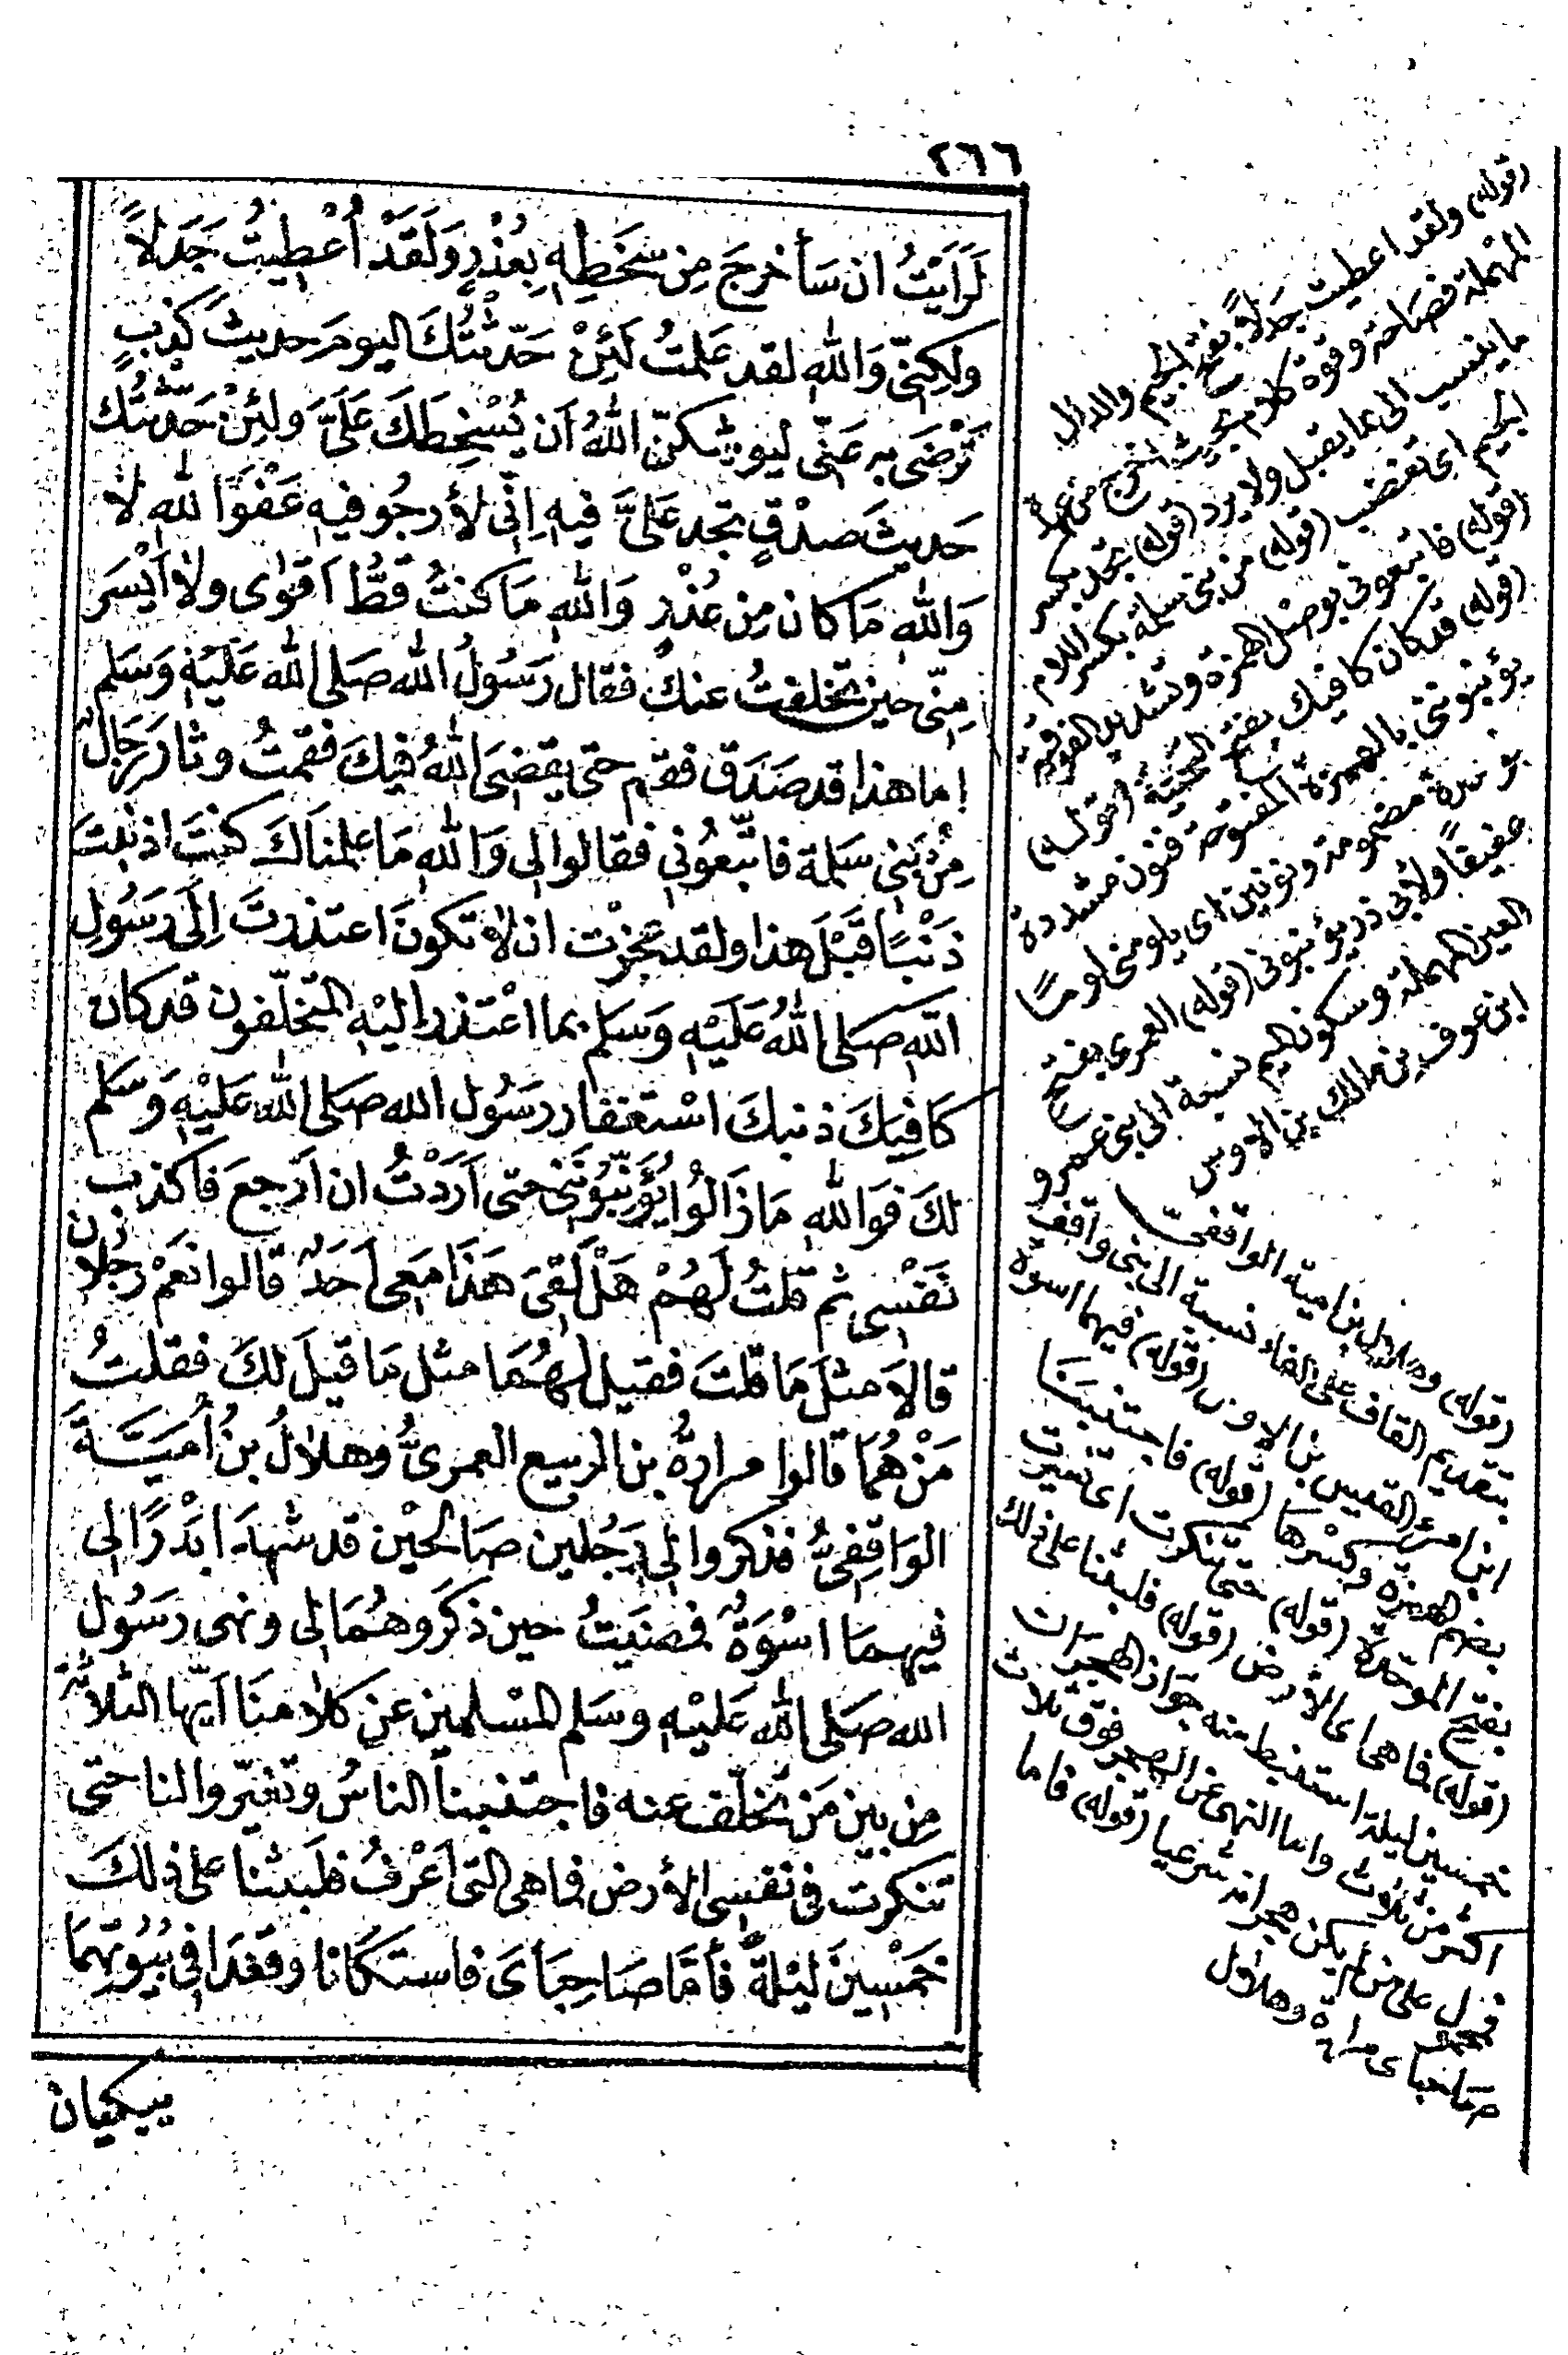 ٢٦٦
لَرَأيْتُ ان سَأَخرجَ مِن سَخَطِهِ بِعُذْرٍ وَلَقَدْ أُعْطِيتُ جَدَلاً
ولكِنّى وَاللّٰهِ لقد عَلمتُ لَئِنْ حَدّثْتُكَ اليومَ حديثَ كذبٍ
تَرْضَى به عَنّى ليوشكنّ اللّٰهُ اَن يُسْخِطَكَ عَلَىَّ وَلئِنْ حَدّثتُك
حَديثَ صدْقٍ تجد عَلَىَّ فيهِ اِنّى لأرجُو فيهِ عَفْوَ اللّٰهِ لا
وَاللّٰهِ مَا كان مِن عُذْرٍ وَاللّٰهِ مَا كنتُ قطُّ اَقوٰى ولا اَيْسَرَ
مِنّى حين تخلفتُ عنكَ فقال رَسُولُ اللّٰه صَلى اللّٰه عَلَيْهِ وَسَلم
اما هذا قد صَدَق فقم حتى يقضىَ اللّٰهُ فيكَ فقمتُ وثارَ رِجَالٌ
مِنْ بَنى سَلمة فاتّبعُونى فقالوا لى وَاللّٰهِ مَا علمنَاكَ كنتَ اذنبتَ
ذَنْبًا قَبْلَ هذا ولقد عَجزْت ان لا تكونَ اعتذرتَ اِلَى رَسُولِ
اللّٰهِ صَلى اللّٰهُ عَلَيْهِ وَسَلم بما اعْتَذر اليْهِ المتخلّفون قد كان
كَافِيكَ ذنبكَ اسْتغفار رَسُول اللّٰه صَلى اللّٰه عَلَيْهِ وَسَلم
لكَ فَوَاللّٰهِ مَا زَالُوا يُؤَنِّبُونَنِى حتى اَرَدْتُ ان اَرجعَ فاكذب
نَفْسِى ثم قلتُ لَهُمْ هَلْ لَقِىَ هَذَا مَعِى اَحَدٌ قالوا نعَمْ رَجُلان
قالاَ مثلَ مَا قلتَ فقيل لهُمَا مثل مَا قيلَ لكَ فقلتُ
مَنْ هُمَا قالوا مرارةُ بن الربيع العمرىُّ وهلالُ بنُ اُميَّةَ
الوَاقِفِىُّ فذكروا لى رَجُلين صَالحْين قد شهدَا بَدْرًا لى
فيهما اسْوَةٌ فمضَيتُ حين ذكَروهُمَا لى ونهى رسَوُل
اللّٰه صَلى اللّٰه عَليْهِ وسَلم المسْلمين عَن كلامنَا اَيّها الثلاثة
مِن بين مَن تخلّف عنه فاجتنبنا الناسُ وتغيّروا لنا حتى
تنكرت فى نفسى الأرض فما هى التى اَعْرفُ فلَبثنا على ذلكَ
خمْسِينَ ليْلةً فأمّا صَاحِبَاىَ فاستكَانا وقعَدَا فى بيُوتِهمَا
يبكيان
(قوله) ولقد اعطيت جدلاً بفتح الجيم والدال
المهملة فصاحة وقوة كلام بحيث اخرج من عهدة
ما ينسب الى بما يقبل ولا يرد (قوله) تجد بكسر
الجيم اى تغضب (قوله) من بنى سلمة بكسر اللام
(قوله) فاتبعونى بوصل الهمزة وتشديد الفوقية
(قوله) قد كان كافيك بفتح التحتية (قوله)
يؤنبوننى بالهمزة المفتوحة فنون مشددة
مضمومة ونونين اى يلومننى لومًا
عنيفًا ولابى ذر يؤنبونى (قوله) العمرى بفتح
العين المهملة وسكون الميم نسبة الى بنى عمرو
ابن عوف بن مالك بن الاوس
(قوله) وهلال بن امية الواقفى
بتقديم القاف على الفاء نسبة الى بنى واقف
ابن امرئ القيس بن الاوس (قوله) فيهما اسوة
بضم الهمزة وكسرها (قوله) فاجتنبنا
بفتح الموحدة (قوله) حتى تنكرت اى تغيرت
(قوله) فما هى اى الارض (قوله) فلبثنا على ذلك
خمسين ليلة استنبط منه جواز الهجران
اكثر من ثلاث واما النهى عن الهجر فوق ثلاث
فمحمول على من لم يكن هجرانه شرعيا (قوله) فاما
صاحباى مرارة وهلال